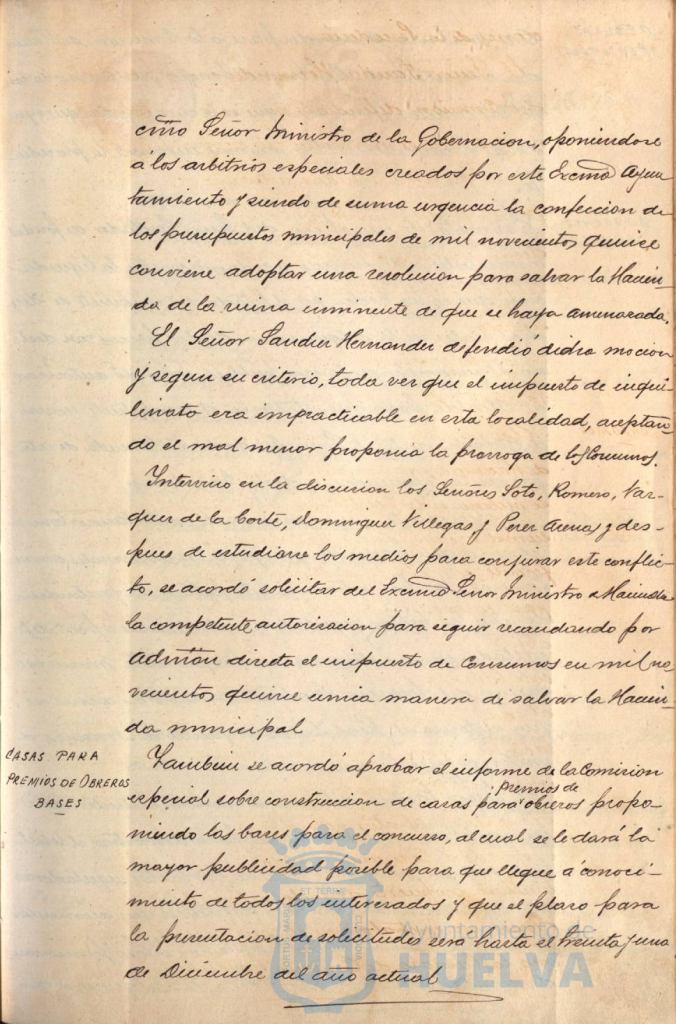 cmo Señor Ministro de la Gobernacion, oponiendose
á los arbitrios especiales creados por este Excmo Ayun
tamiento y siendo de suma urgencia la confeccion de
los presupuestos municipales de mil novecientos quince
conviene adoptar una resolucion para salvar la Hacien
da de la ruina inminente de que se haya amenazada.
El Señor Sanchez Hernandez defendió dicha mocion
y segun su criterio, toda vez que el impuesto de inqui
linato era impracticable en esta localidad, aceptan
do el mal menor proponia la prorroga de los Consumos.
Intervino en la discusion los Señores Soto, Romero, Vaz-
quez de la Corte, Dominguez Villegas y Perez Arenas y des-
pues de estudiarse los medios para conjurar este conflic-
to, se acordó solicitar del Excmo Señor Ministro de Hacienda
la competente autorizacion para seguir recaudando por
Admón directa el impuesto de Consumos en mil no
vecientos quince unica manera de salvar la Hacien-
da municipal
CASAS PARA
PREMIOS DE OBREROS
BASES
Tambien se acordó aprobar el informe de la Comision
especial sobre construccion de casas para premios de obreros propo-
niendo las bases para el concurso, al cual se le dará la
mayor publicidad posible para que llegue á conoci-
miento de todos los interesados y que el plazo para
la presentacion de solicitudes será hasta el treinta y uno
de Diciembre del año actual
Ayuntamiento de
HUELVA